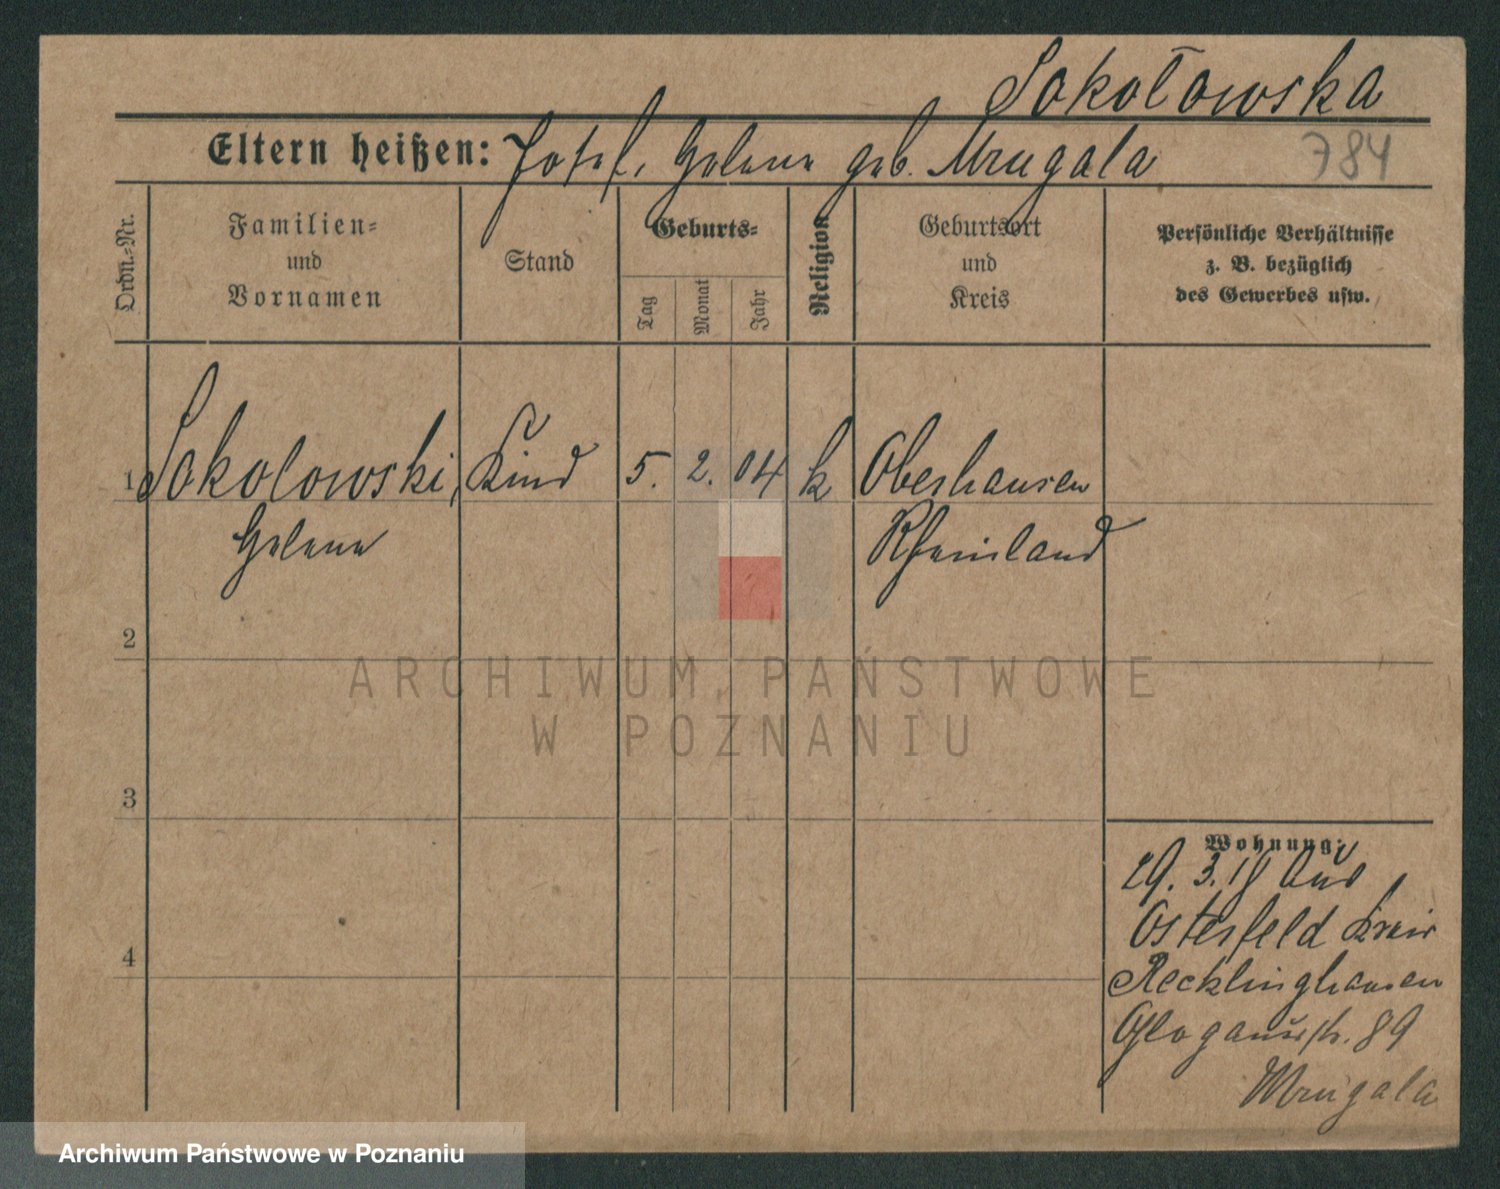 Sokołowska
Eltern heißen: Josef, Helene geb. Mrugala
784
Ordn.-Nr.
Familien-
und
Vornamen
Stand
Geburts-
Tag
Monat
Jahr
Religion
Geburtsort
und
Kreis
Persönliche Verhältnisse
z. B. bezüglich
des Gewerbes usw.
1 Sokolowski, Kind 5. 2. 04 k Oberhausen
Helene Rheinland
2
ARCHIWUM PAŃSTWOWE
W POZNANIU
3
Wohnung:
29. 3. 18 aus
Osterfeld Kreis
4
Recklinghausen
Glogauerstr. 89
Mrugala
Archiwum Państwowe w Poznaniu